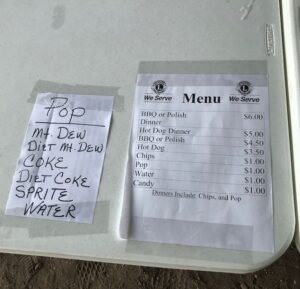 Pop
Mt. DEW
DIET Mt. DEW
COKE
DIET COKE
SPRITE
WATER
We Serve
Menu
We Serve
BBQ or Polish Dinner $6.00
Hot Dog Dinner $5.00
BBQ or Polish $4.50
Hot Dog $3.50
Chips $1.00
Pop $1.00
Water $1.00
Candy $1.00
Dinners Include: Chips, and Pop